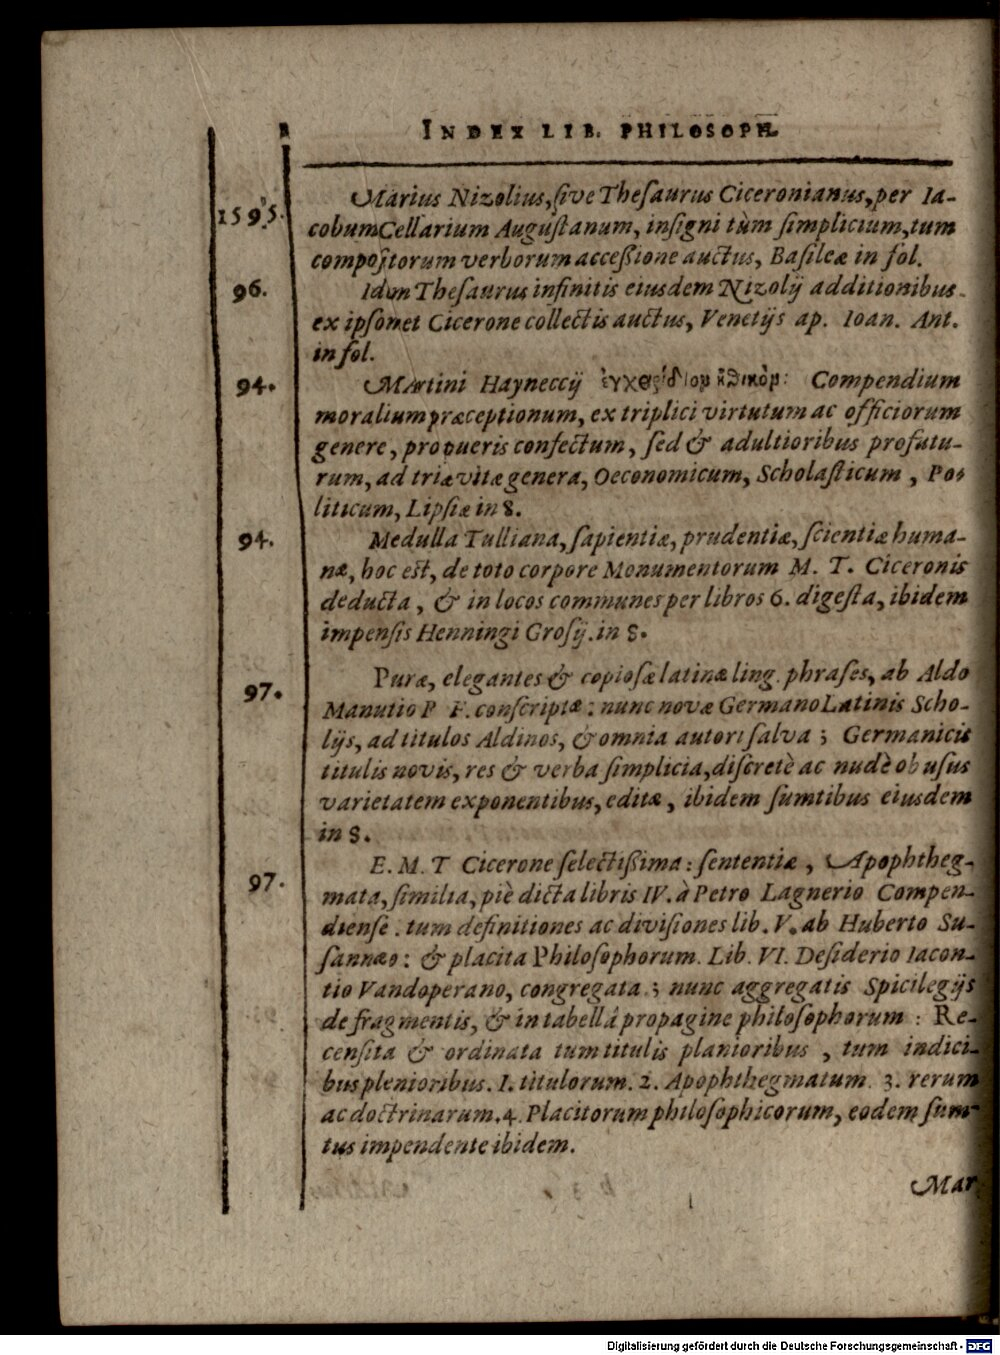 INDEX LIB. PHILOSOPH.
1595. Marius Nizolius, ſive Theſaurus Ciceronianus, per Ia-
cobum Cellarium Auguſtanum, inſigni tùm ſimplicium, tum
compoſitorum verborum acceßione auctus, Baſileæ in fol.
96. Idem Theſaurus infinitis eiusdem Nizolij additionibus
ex ipſomet Cicerone collectis auctus, Venetijs ap. Ioan. Ant.
in fol.
94. Martini Hayneccij Compendium
moralium præceptionum, ex triplici virtutum ac officiorum
genere, pro pueris confectum, ſed & adultioribus profutu-
rum, ad tria vitæ genera, Oeconomicum, Scholaſticum, Po-
liticum, Lipſiæ in 8.
94. Medulla Tulliana, ſapientiæ, prudentiæ, ſcientiæ huma-
næ, hoc est, de toto corpore Monumentorum M. T. Ciceronis
deducta, & in locos communes per libros 6. digeſta, ibidem
impenſis Henningi Groſij. in 8.
97. Puræ, elegantes & copioſæ latinæ ling. phraſes, ab Aldo
Manutio P F. conſcriptæ: nunc novæ GermanoLatinis Scho-
lijs, ad titulos Aldinos, & omnia autori ſalva; Germanicis
titulis novis, res & verba ſimplicia, diſcretè ac nudè ob uſus
varietatem exponentibus, editæ, ibidem ſumtibus eiusdem
in 8.
97. E. M. T Cicerone ſelectißima: ſententiæ, Apophtheg-
mata, ſimilia, piè dicta libris IV. à Petro Lagnerio Compen-
dienſe. tum definitiones ac diviſiones lib. V. ab Huberto Su-
ſannæo: & placita Philoſophorum. Lib. VI. Deſiderio Iacon-
tio Vandoperano, congregata; nunc aggregatis Spicilegijs
de fragmentis, & in tabellâ propagine philoſophorum: Re-
cenſita & ordinata tum titulis planioribus, tum indici-
bus plenioribus. 1. titulorum. 2. Apophthegmatum. 3. rerum
ac doctrinarum. 4. Placitorum philoſophicorum, eodem ſum-
tus impendente ibidem.
Mar
Digitalisierung gefördert durch die Deutsche Forschungsgemeinschaft - DFG